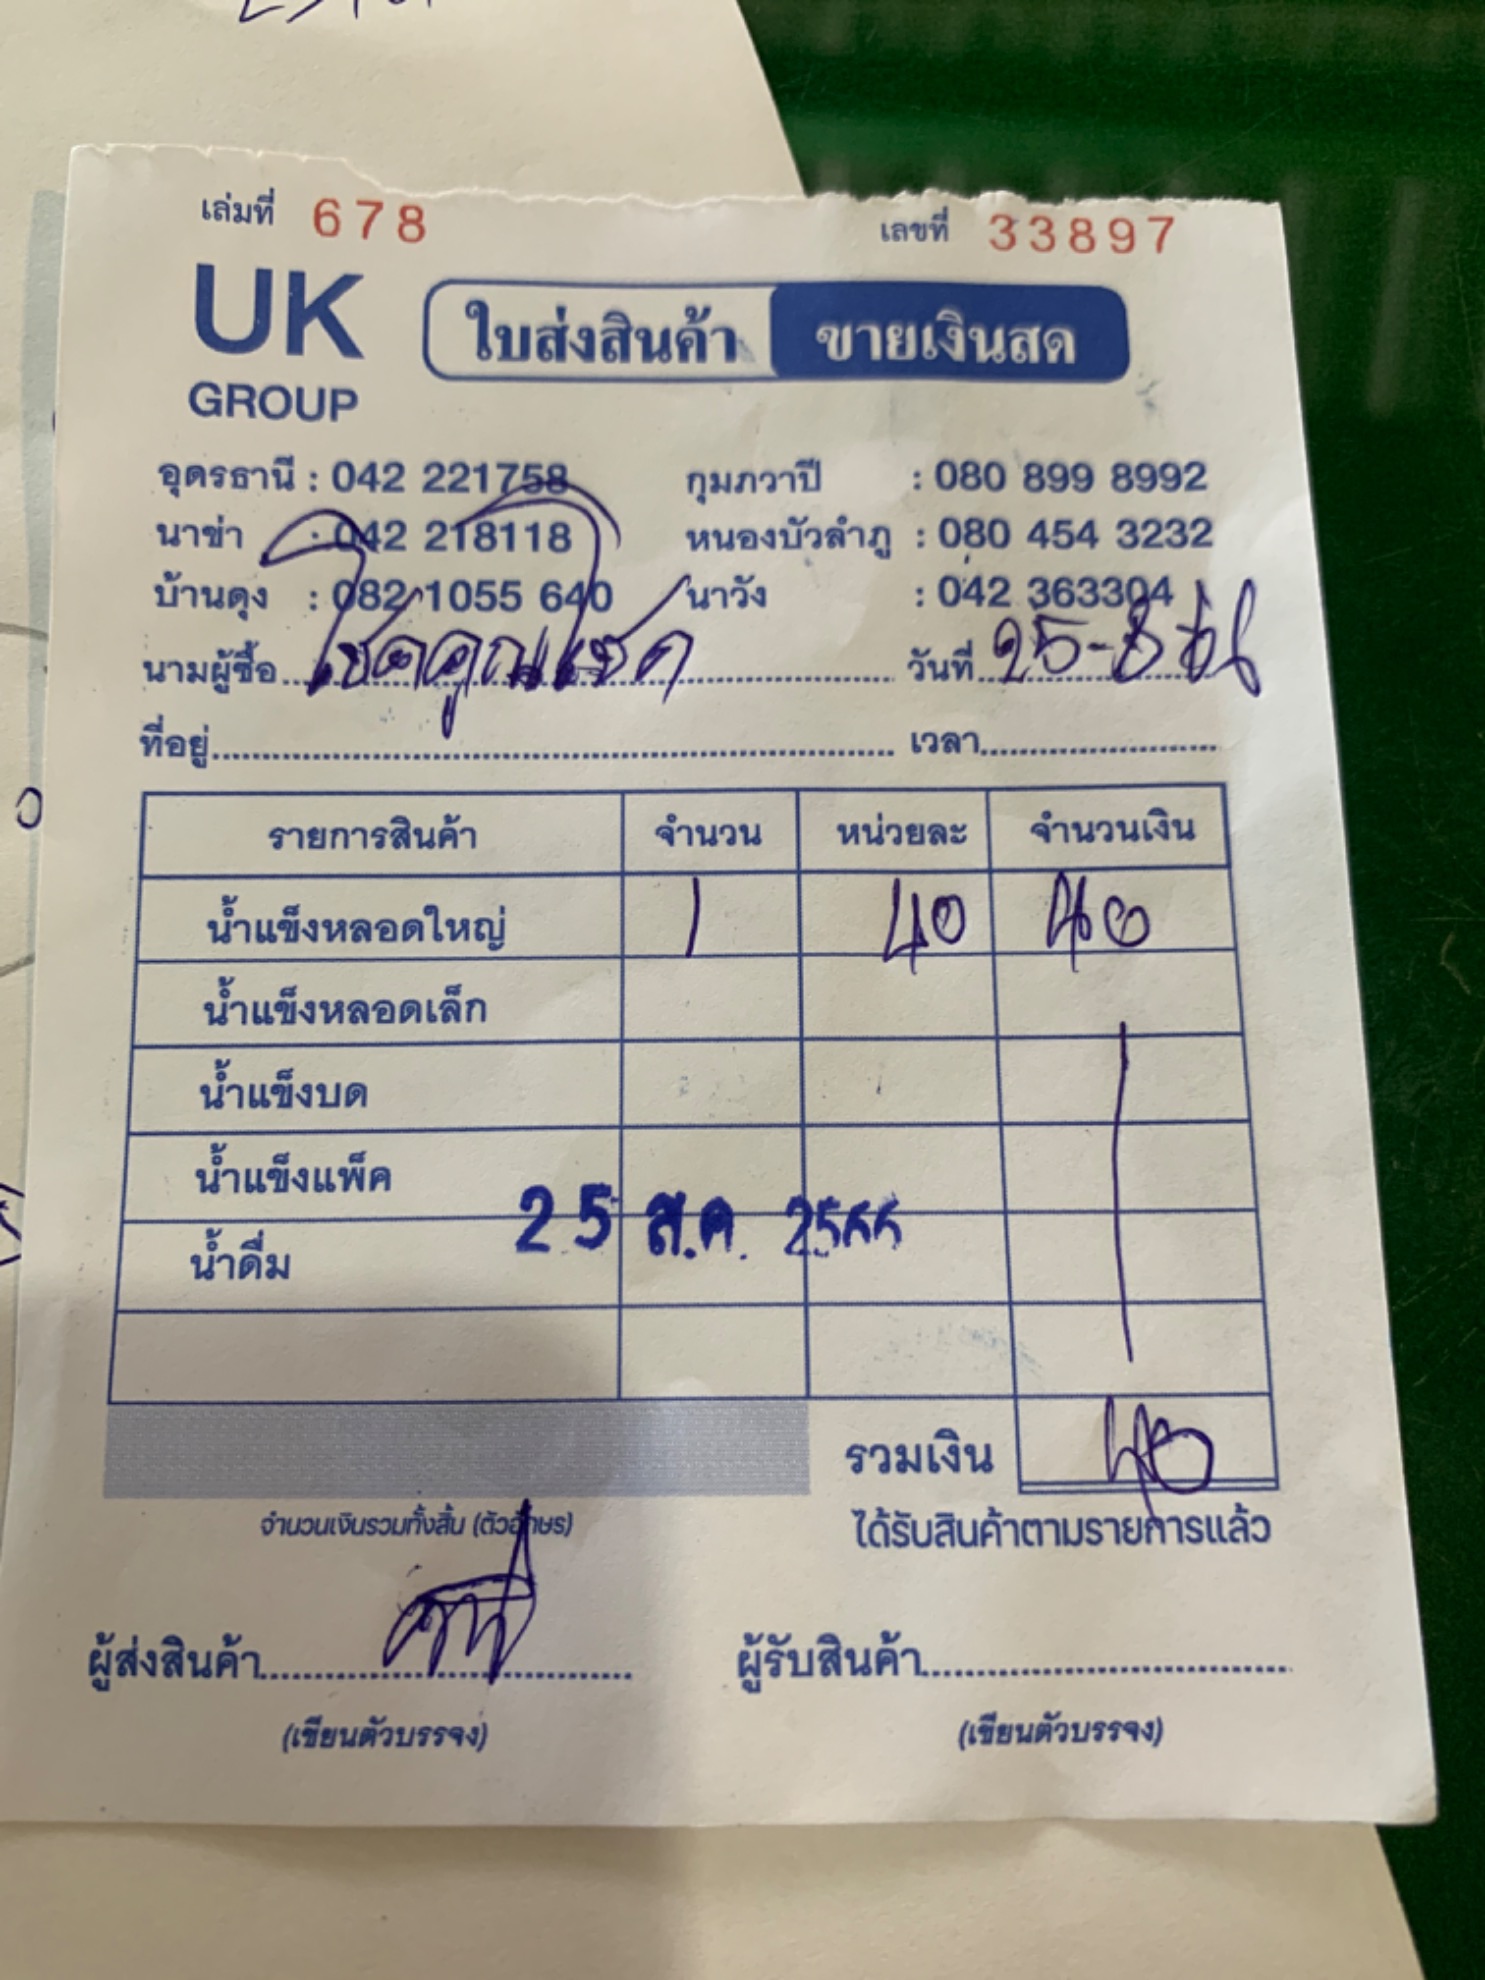 เล่มที่ 678 เลขที่ 33897
UK
GROUP
ใบส่งสินค้า ขายเงินสด
อุดรธานี : 042 221758 กุมภวาปี : 080 899 8992
นาข่า : 042 218118 หนองบัวลำภู : 080 454 3232
บ้านดุง : 082 1055 640 นาวัง : 042 363304
นามผู้ซื้อ โชคคูณโชค วันที่ 25-8
ที่อยู่ เวลา
รายการสินค้า จำนวน หน่วยละ จำนวนเงิน
น้ำแข็งหลอดใหญ่ 1 40 40
น้ำแข็งหลอดเล็ก
น้ำแข็งบด
น้ำแข็งแพ็ค
25 ส.ค. 2566
น้ำดื่ม
รวมเงิน 40
จำนวนเงินรวมทั้งสิ้น (ตัวอักษร) ได้รับสินค้าตามรายการแล้ว
ผู้ส่งสินค้า ผู้รับสินค้า
(เขียนตัวบรรจง) (เขียนตัวบรรจง)